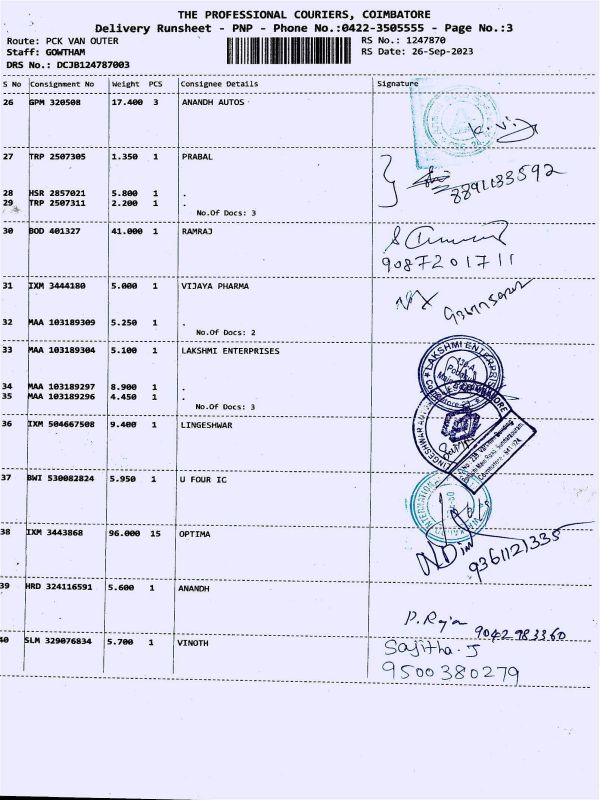 THE PROFESSIONAL COURIERS, COIMBATORE
Delivery Runsheet - PNP - Phone No.:0422-3505555 - Page No.:3
Route: PCK VAN OUTER RS No.: 1247870
Staff: GOWTHAM RS Date: 26-Sep-2023
DRS No.: DCJB124787003
S No Consignment No Weight PCS Consignee Details Signature
26 GPM 320508 17.400 3 ANANDH AUTOS
K. Vij
27 TRP 2507305 1.350 1 PRABAL
8891133592
28 HSR 2857021 5.800 1 .
29 TRP 2507311 2.200 1 .
No.Of Docs: 3
30 BOD 401327 41.000 1 RAMRAJ
9087201711
31 IXM 3444180 5.000 1 VIJAYA PHARMA
32 MAA 103189309 5.250 1 .
No.Of Docs: 2
33 MAA 103189304 5.100 1 LAKSHMI ENTERPRISES
LAKSHMI ENTERPRISES
34 MAA 103189297 8.900 1 .
35 MAA 103189296 4.450 1 .
No.Of Docs: 3
36 IXM 504667508 9.400 1 LINGESHWAR
LINGESHWAR
37 BWI 530082824 5.950 1 U FOUR IC
INTERNATIONAL
38 IXM 3443868 96.000 15 OPTIMA
9361121335
39 HRD 324116591 5.600 1 ANANDH
P. Raja
9042983360
40 SLM 329076834 5.700 1 VINOTH
Sajitha. J
9500380279